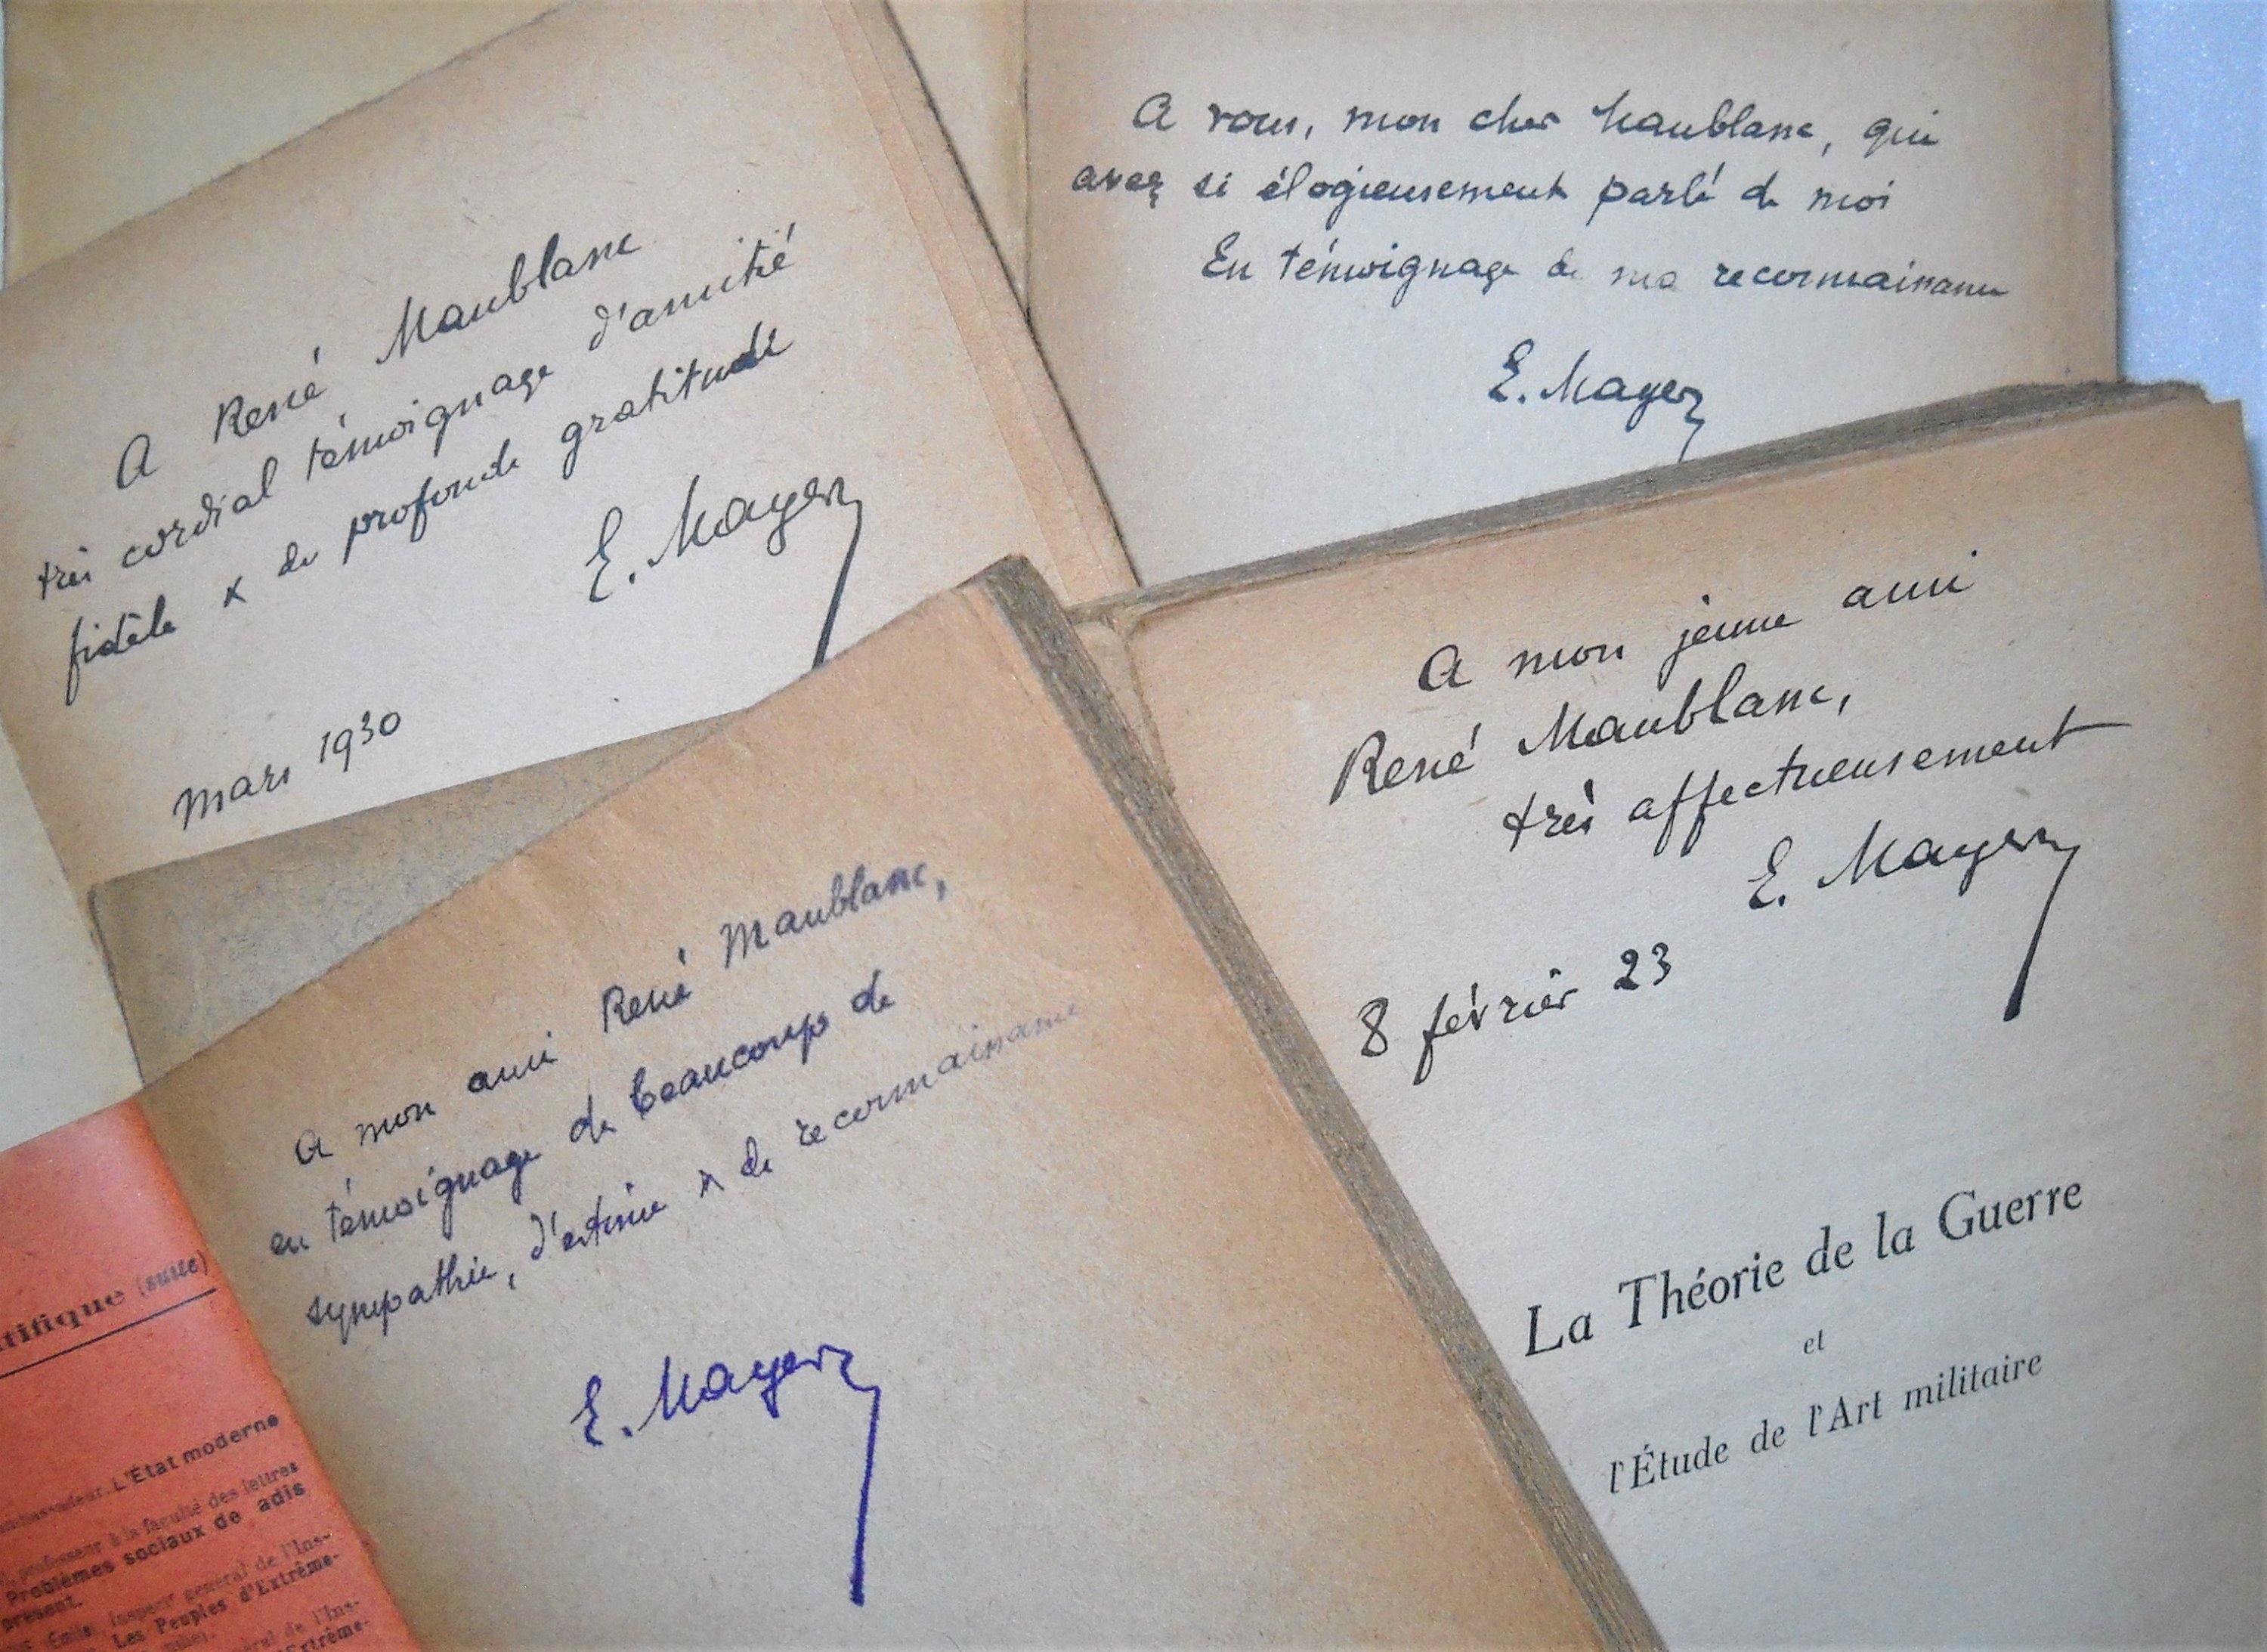 A René Maublanc
très cordial témoignage d'amitié
fidèle & de profonde gratitude
E. Mayer
Mars 1930
A vous, mon cher Maublanc, qui
avez si élogieusement parlé de moi
En témoignage de ma reconnaissance
E. Mayer
A mon jeune ami
René Maublanc,
très affectueusement
E. Mayer
8 février 23
La Théorie de la Guerre
et
l'Étude de l'Art militaire
A mon ami René Maublanc,
en témoignage de beaucoup de
sympathie, d'estime & de reconnaissance
E. Mayer
tifique (suite)
L'État moderne
professeur à la faculté des lettres
Problèmes sociaux de jadis
présent.
Inspect' général de l'Ins-
Les Peuples d'Extrême-
général de l'Ins-
Extrême-